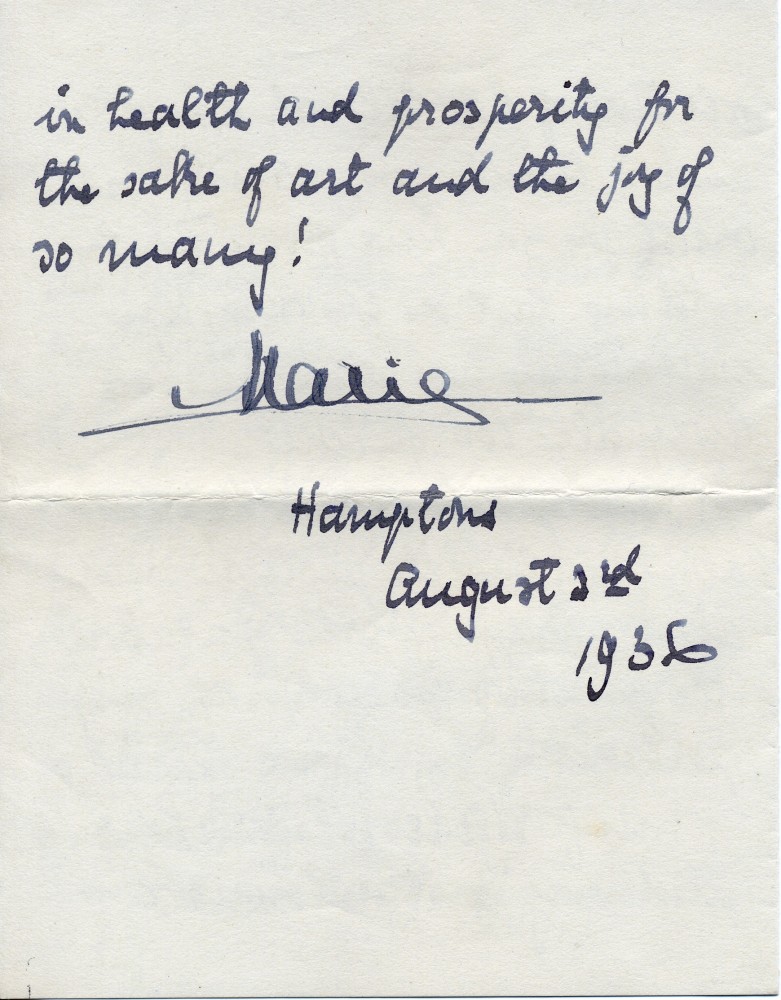 in health and prosperity for
the sake of art and the joy of
so many!
Marie
Hamptons
August 3rd
1936